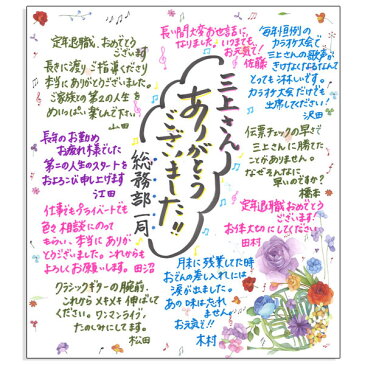 三上さん
ありがとう
ございました!!
総務部一同
定年退職、おめでとう
ございます
長きに渡りご指導くださり
本当にありがとうございました。
ご家族との第2の人生を
めいっぱい楽しんで下さい
山田
長い間大変お世話に
なりました。いつまでも
お元気で!
佐藤
毎年恒例の
カラオケ大会で
三上さんの歌声が
きけなくなるなんて
とっても淋しいです。
カラオケ大会だけでも
出席してください!
沢田
長年のお勤め
お疲れ様でした
第二の人生のスタートを
およろこび申し上げます
江田
伝票チェックの早さで
三上さんに勝てた
ことがありません。
なぜそんなに
早いのですか?
橋本
仕事でもプライベートでも
色々相談にのって
もらい、本当にあり
がとうございました。これからも
よろしくお願いします。田沼
定年退職おめでとう
ございます!
お体大切にしてください。
田村
クラシックギターの腕前、
これからメキメキ伸ばして
ください。ワンマンライブ、
たのしみにしてます。
松田
月末に残業してた時
おでんの差し入れには
涙が出ました。
あの味は忘れ
ません。
お元気で!!
木村